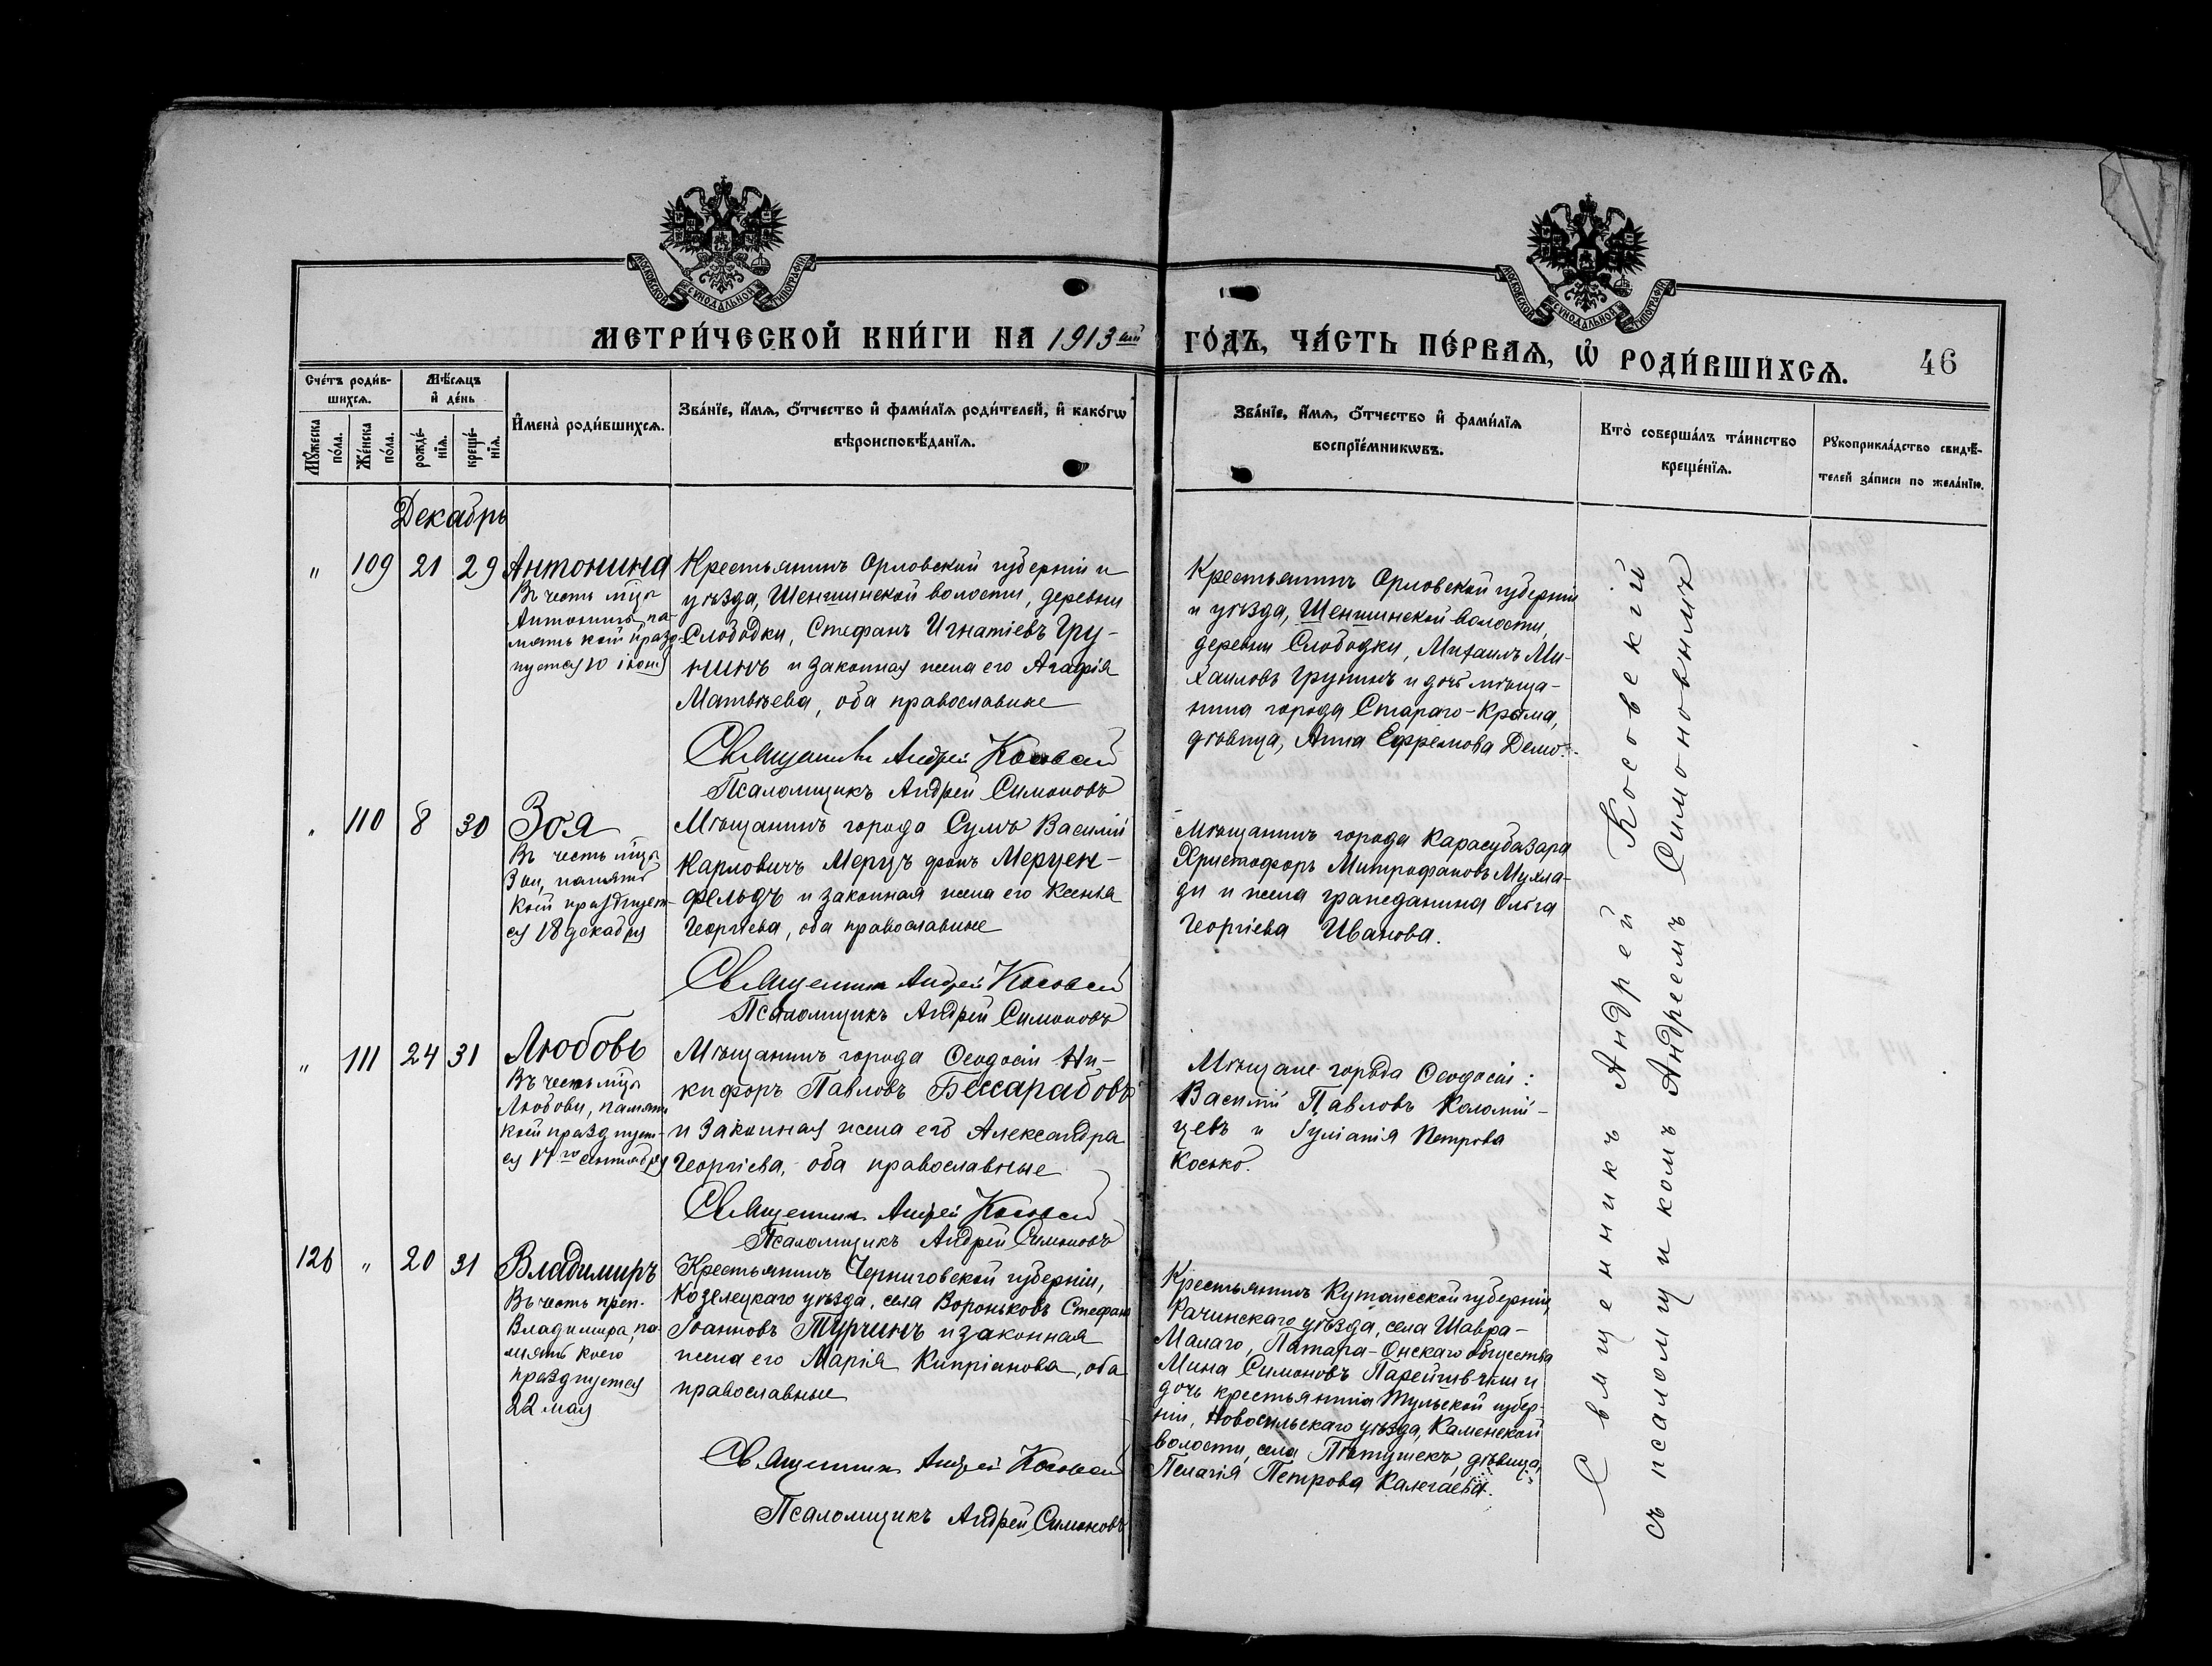 МОСКОВСКОЙ СѴНОДАЛЬНОЙ ТИПОГРАФІИ
МОСКОВСКОЙ СѴНОДАЛЬНОЙ ТИПОГРАФІИ
МЕТРИ́ЧЕСКОЙ КНИ́ГИ НА 1913ый ГО́ДЪ, ЧА́СТЬ ПЕ́РВАѦ, Ѡ҆ РОДИ́ВШИХСѦ. 46
Сче́тъ роди́в-
шихсѧ.
Мꙋ́жеска по́ла.
Же́нска по́ла.
Мѣ́сѧцъ
и҆ де́нь
рожде́-
нїѧ.
креще́-
нїѧ.
И҆мена̀ роди́вшихсѧ.
Зва́нїе, и҆́мѧ, ѻ҆́тчество и҆ фами́лїѧ роди́телей, и҆ како́гѡ
вѣроисповѣ́данїѧ.
Зва́нїе, и҆́мѧ, ѻ҆́тчество и҆ фами́лїѧ
воспрїе́мникѡвъ.
Кто̀ соверша́лъ та́инство
креще́нїѧ.
Рꙋкоприкла́дство свидѣ́-
телей за́писи по жела́нїю.
Декабрь
" 109 21 29 Антонина
Въ честь мцы
Антонины, па-
мять коей празд-
нуется 10 іюня
Крестьянинъ Орловской губерніи и
уѣзда, Шеншинской волости, деревни
Слободки, Стефанъ Игнатіевъ Гру-
нинъ и законная жена его Агафія
Матвѣева, оба православные
Священникъ Андрей Косовскій
Псаломщикъ Андрей Симоновъ
Крестьянинъ Орловской губерніи
и уѣзда, Шеншинской волости,
деревни Слободки, Михаилъ Ми-
хаиловъ Грунинъ и дочь мѣща-
нина города Стараго-Крыма,
дѣвица, Анна Ефремова
" 110 8 30 Зоя
Въ честь мцы
Зои, память
коей празднует-
ся 18 декабря
Мѣщанинъ города Сумъ Василій
Карловичъ Мерцъ фонъ Мерцен-
фельдъ и законная жена его Ксенія
Георгіева, оба православные
Священникъ Андрей Косовскій
Псаломщикъ Андрей Симоновъ
Мѣщанинъ города Карасубазара
Христофоръ Митрофановъ Мухла-
ди и жена гражданина Ольга
Георгіева Иванова.
" 111 24 31 Любовь
Въ честь мцы
Любови, память
коей празднует-
ся 17го сентября
Мѣщанинъ города Ѳеодосіи Ни-
кифоръ Павловъ Бессарабовъ
и законная жена его Александра
Георгіева, оба православные
Священникъ Андрей Косовскій
Псаломщикъ Андрей Симоновъ
Мѣщане города Ѳеодосіи:
Василій Павловъ Коломій-
цевъ и Іуліанія Петрова
Косько.
126 " 20 31 Владимиръ
Въ честь преп.
Владимира, па-
мять коего
празднуется
22 мая
Крестьянинъ Черниговской губерніи,
Козелецкаго уѣзда, села Вороньковъ Стефанъ
Іоанновъ Турчинъ и законная
жена его Марія Кипріанова, оба
православные
Священникъ Андрей Косовскій
Псаломщикъ Андрей Симоновъ
Крестьянинъ Кутаисской губерніи,
Рачинскаго уѣзда, села Шавра-
Малаго, Патара-Онскаго общества
Мина Симоновъ и
дочь крестьянина Тульской губер-
ніи, Новосильскаго уѣзда, Каменской
волости, села Пѣтушекъ, дѣвица,
Пелагія Петрова Калегаева.
Священникъ Андрей Косовскій
съ псаломщикомъ Андреемъ Симоновымъ